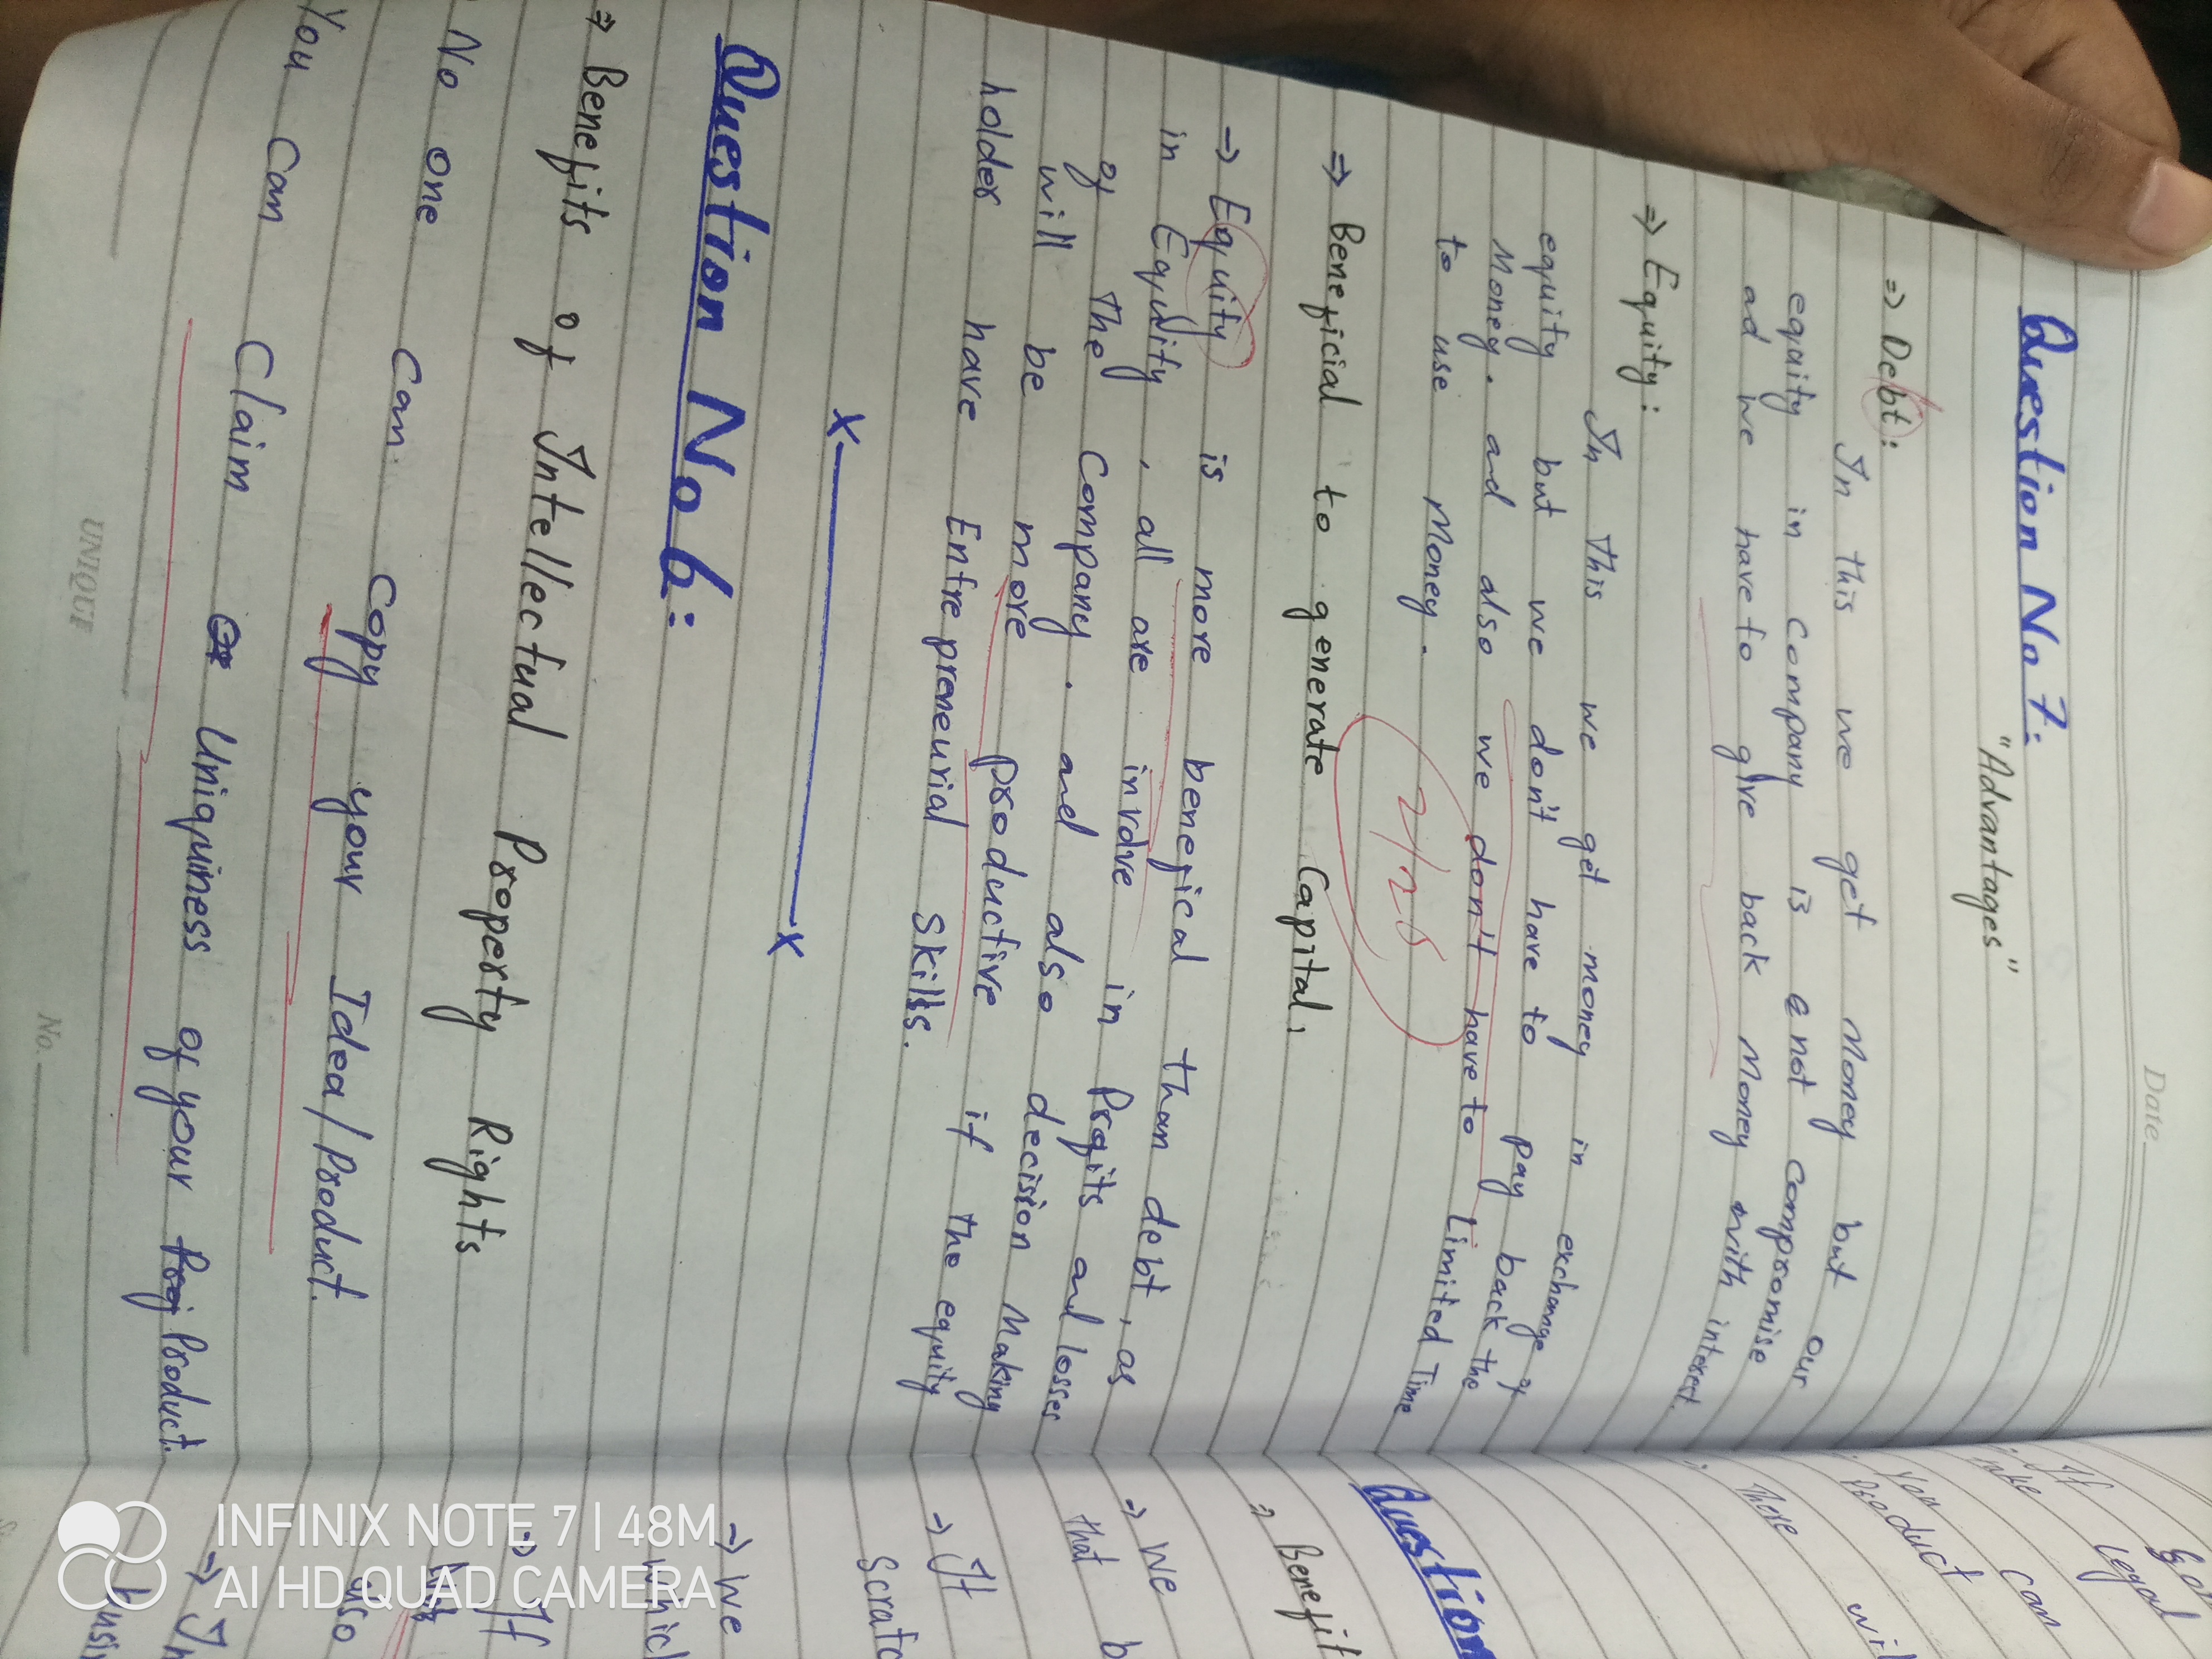 Date
Question No 7:
"Advantages"
⇒ Debt:
In this we get Money but our
equity in company is not compromise
ad we have to give back Money with interest.
⇒ Equity:
In This we get money in exchange of
equity but we don't have to pay back the
Money. and also we don't have to Limited Time
to use Money.
2/2.5
⇒ Beneficial to generate Capital,
⇒ Equity is more benefical than debt, as
in Equity, all are involve in Profits and losses
of the Company. and also decision Making
will be more productive if the equity
holder have Entrepreneurial Skills.
x x
Question No 6:
⇒ Benefits of Intellectual Property Rights
No one can copy your Idea/Product.
You can Claim Uniquiness of your Product.
UNIQUE
No.
legal
If can
inke
you
Product will
There
Question
⇒ Benefit
⇒ We
that b
⇒ It
Scratc
⇒ We
which
⇒ If
also
⇒ In
busi
INFINIX NOTE 7 | 48M
AI HD QUAD CAMERA